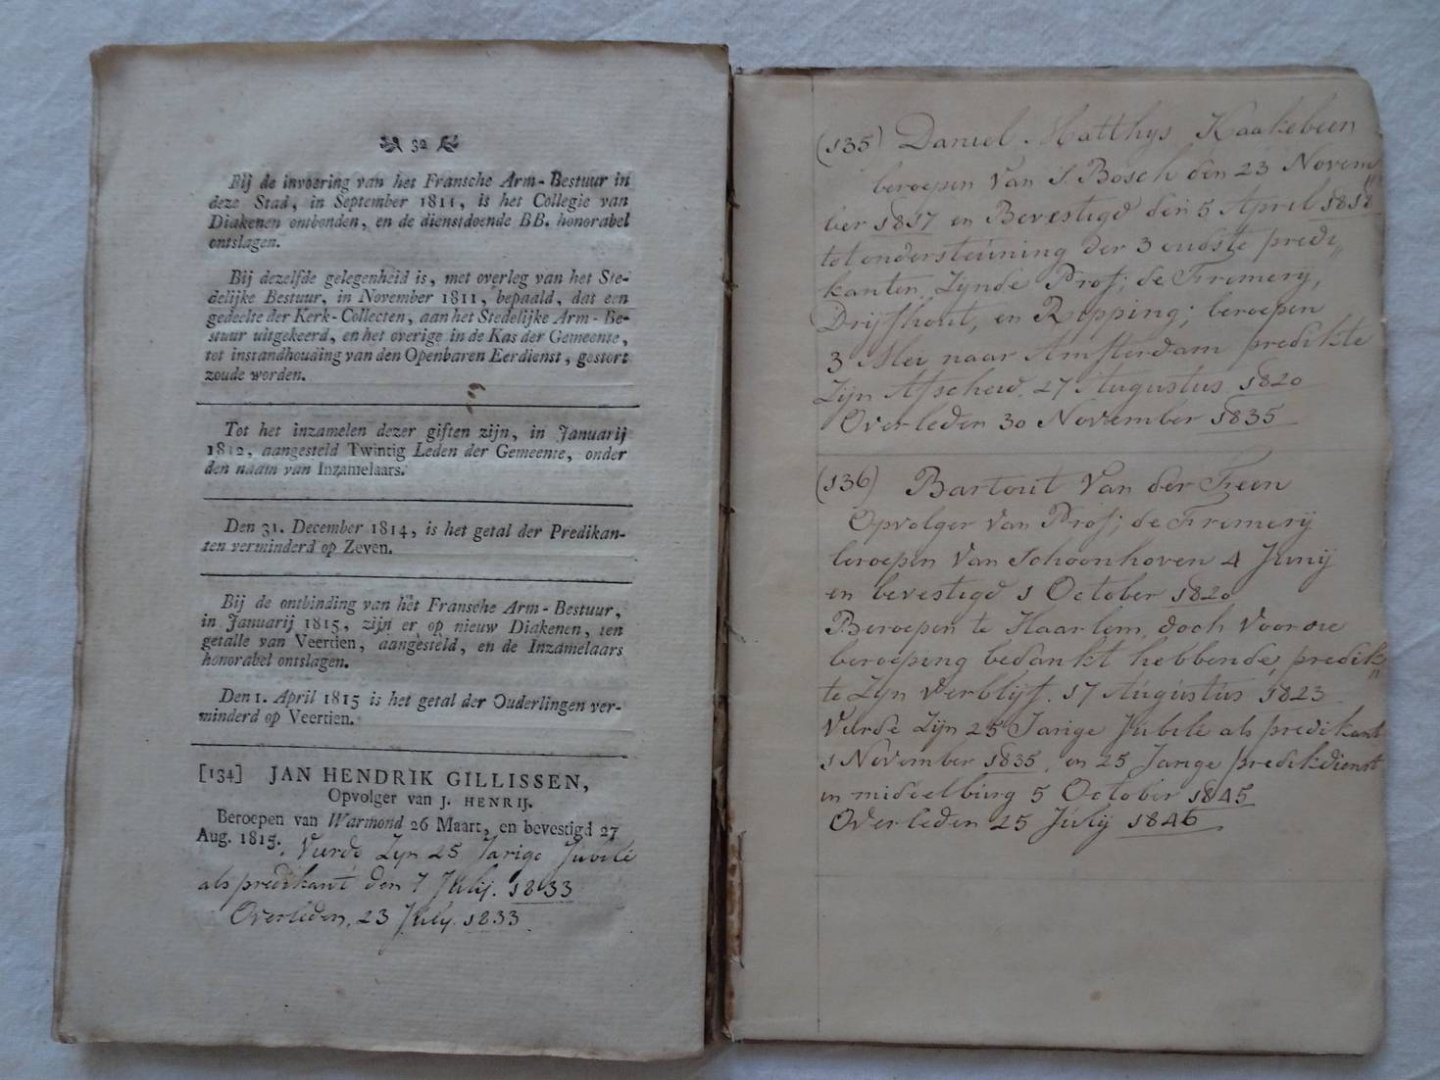 32
Bij de invoering van het Fransche Arm-Bestuur in
deze Stad, in September 1811, is het Collegie van
Diakenen ontbonden, en de dienstdoende BB. honorabel
ontslagen.
Bij dezelfde gelegenheid is, met overleg van het Ste-
delijke Bestuur, in November 1811, bepaald, dat een
gedeelte der Kerk-Collecten, aan het Stedelijke Arm-Be-
stuur uitgekeerd, en het overige in de Kas der Gemeente,
tot instandhouding van den Openbaren Eerdienst, gestort
zoude worden.
Tot het inzamelen dezer giften zijn, in Januarij
1812, aangesteld Twintig Leden der Gemeente, onder
den naam van Inzamelaars.
Den 31. December 1814, is het getal der Predikan-
ten verminderd op Zeven.
Bij de ontbinding van het Fransche Arm-Bestuur,
in Januarij 1815, zijn er op nieuw Diakenen, ten
getalle van Veertien, aangesteld, en de Inzamelaars
honorabel ontslagen.
Den 1. April 1815 is het getal der Ouderlingen ver-
minderd op Veertien.
[134] JAN HENDRIK GILLISSEN,
Opvolger van J. HENRIJ.
Beroepen van Warmond 26 Maart, en bevestigd 27
Aug. 1815. Vierde Zijn 25 Jarige Jubilé
als predikant den 7 Julij. 1833
Overleden, 23 July. 1833.
(135) Daniel Matthys Kaakebeen
beroepen Van S. Bosch den 23 Novem„
ber 1817 en Bevestigd den 5 April 1818
tot ondersteuning der 3 oudste predi„
kanten, Zynde Prof; de Fremerij,
Drijfhout, en Ripping; beroepen
3 Mei naar Amsterdam predikte
Zijn Afscheid 27 Augustus 1820
Overleden 30 November 1835
(136) Bartout Van der Feen
Opvolger van Prof; de Fremerij
beroepen Van Schoonhoven 4 Junij
en bevestigd 1 October 1820
Beroepen te Haarlem, doch Voor die
beroeping bedankt hebbende, predik„
te Zyn Verblijf. 17 Augustus 1823
Vierde Zijn 25 Jarige Jubilé als predikant
1 November 1835, en 25 Jarige predikdienst
in middelburg 5 October 1845
Overleden 25 July 1846.